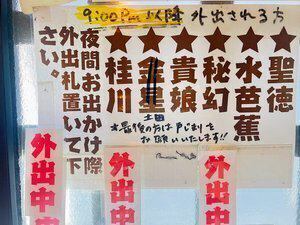 9:00Pm以降 外出される方
★聖徳
★水芭蕉
★秘幻
★貴娘
★桂川
土田
※最後の方は戸じまりを
お願いいたします!!
夜間お出かけ際
外出札置いて下
さい。
外出中
外出中
外出中